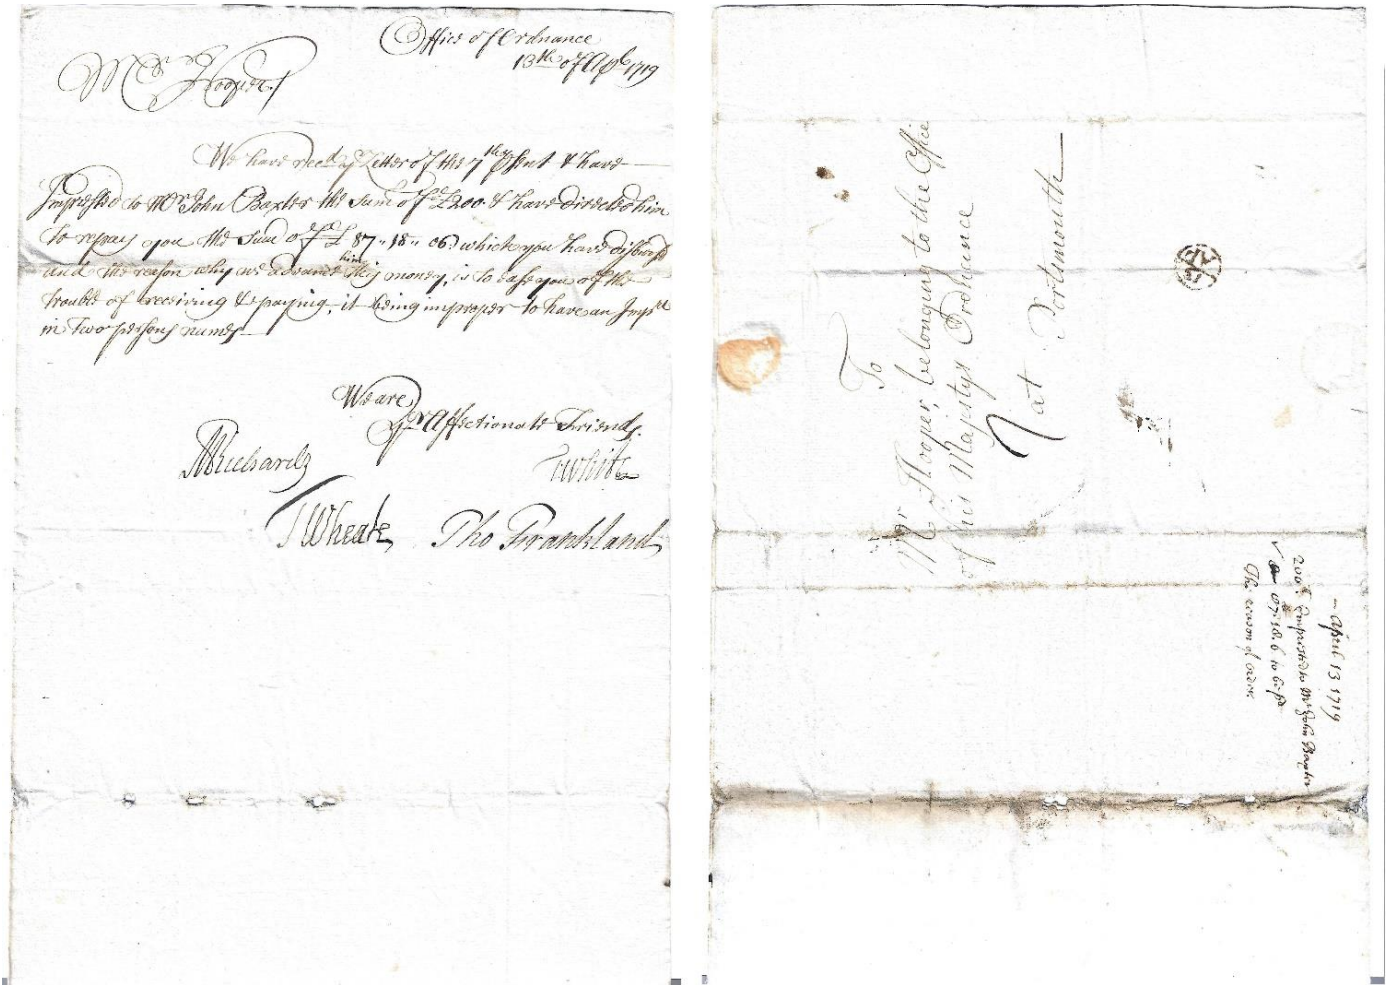 Office of Ordnance
13th of Apr 1719
Mr Hooper
We have recd yr Letter of the 7th psent & have
Impressed to Mr John Baxter the Sum of £200 & have directed him
to repay you the Sum of £87,,18,,06 which you have disburst
and the reason why we advance him this money, is to ease you of the
trouble of receiving & paying, it being improper to have an Impst
in Two persons names
We are
yr Affectionate Friends
M Richards
T White
T Wheate
Tho Frankland
To
Mr Hooper, belonging to the Office
of his Majestys Ordnance
at Portsmouth
AP
- April 13 1719
200£ Imprested to Mr John Baxter
87.18.6 to be pd
The reason of order